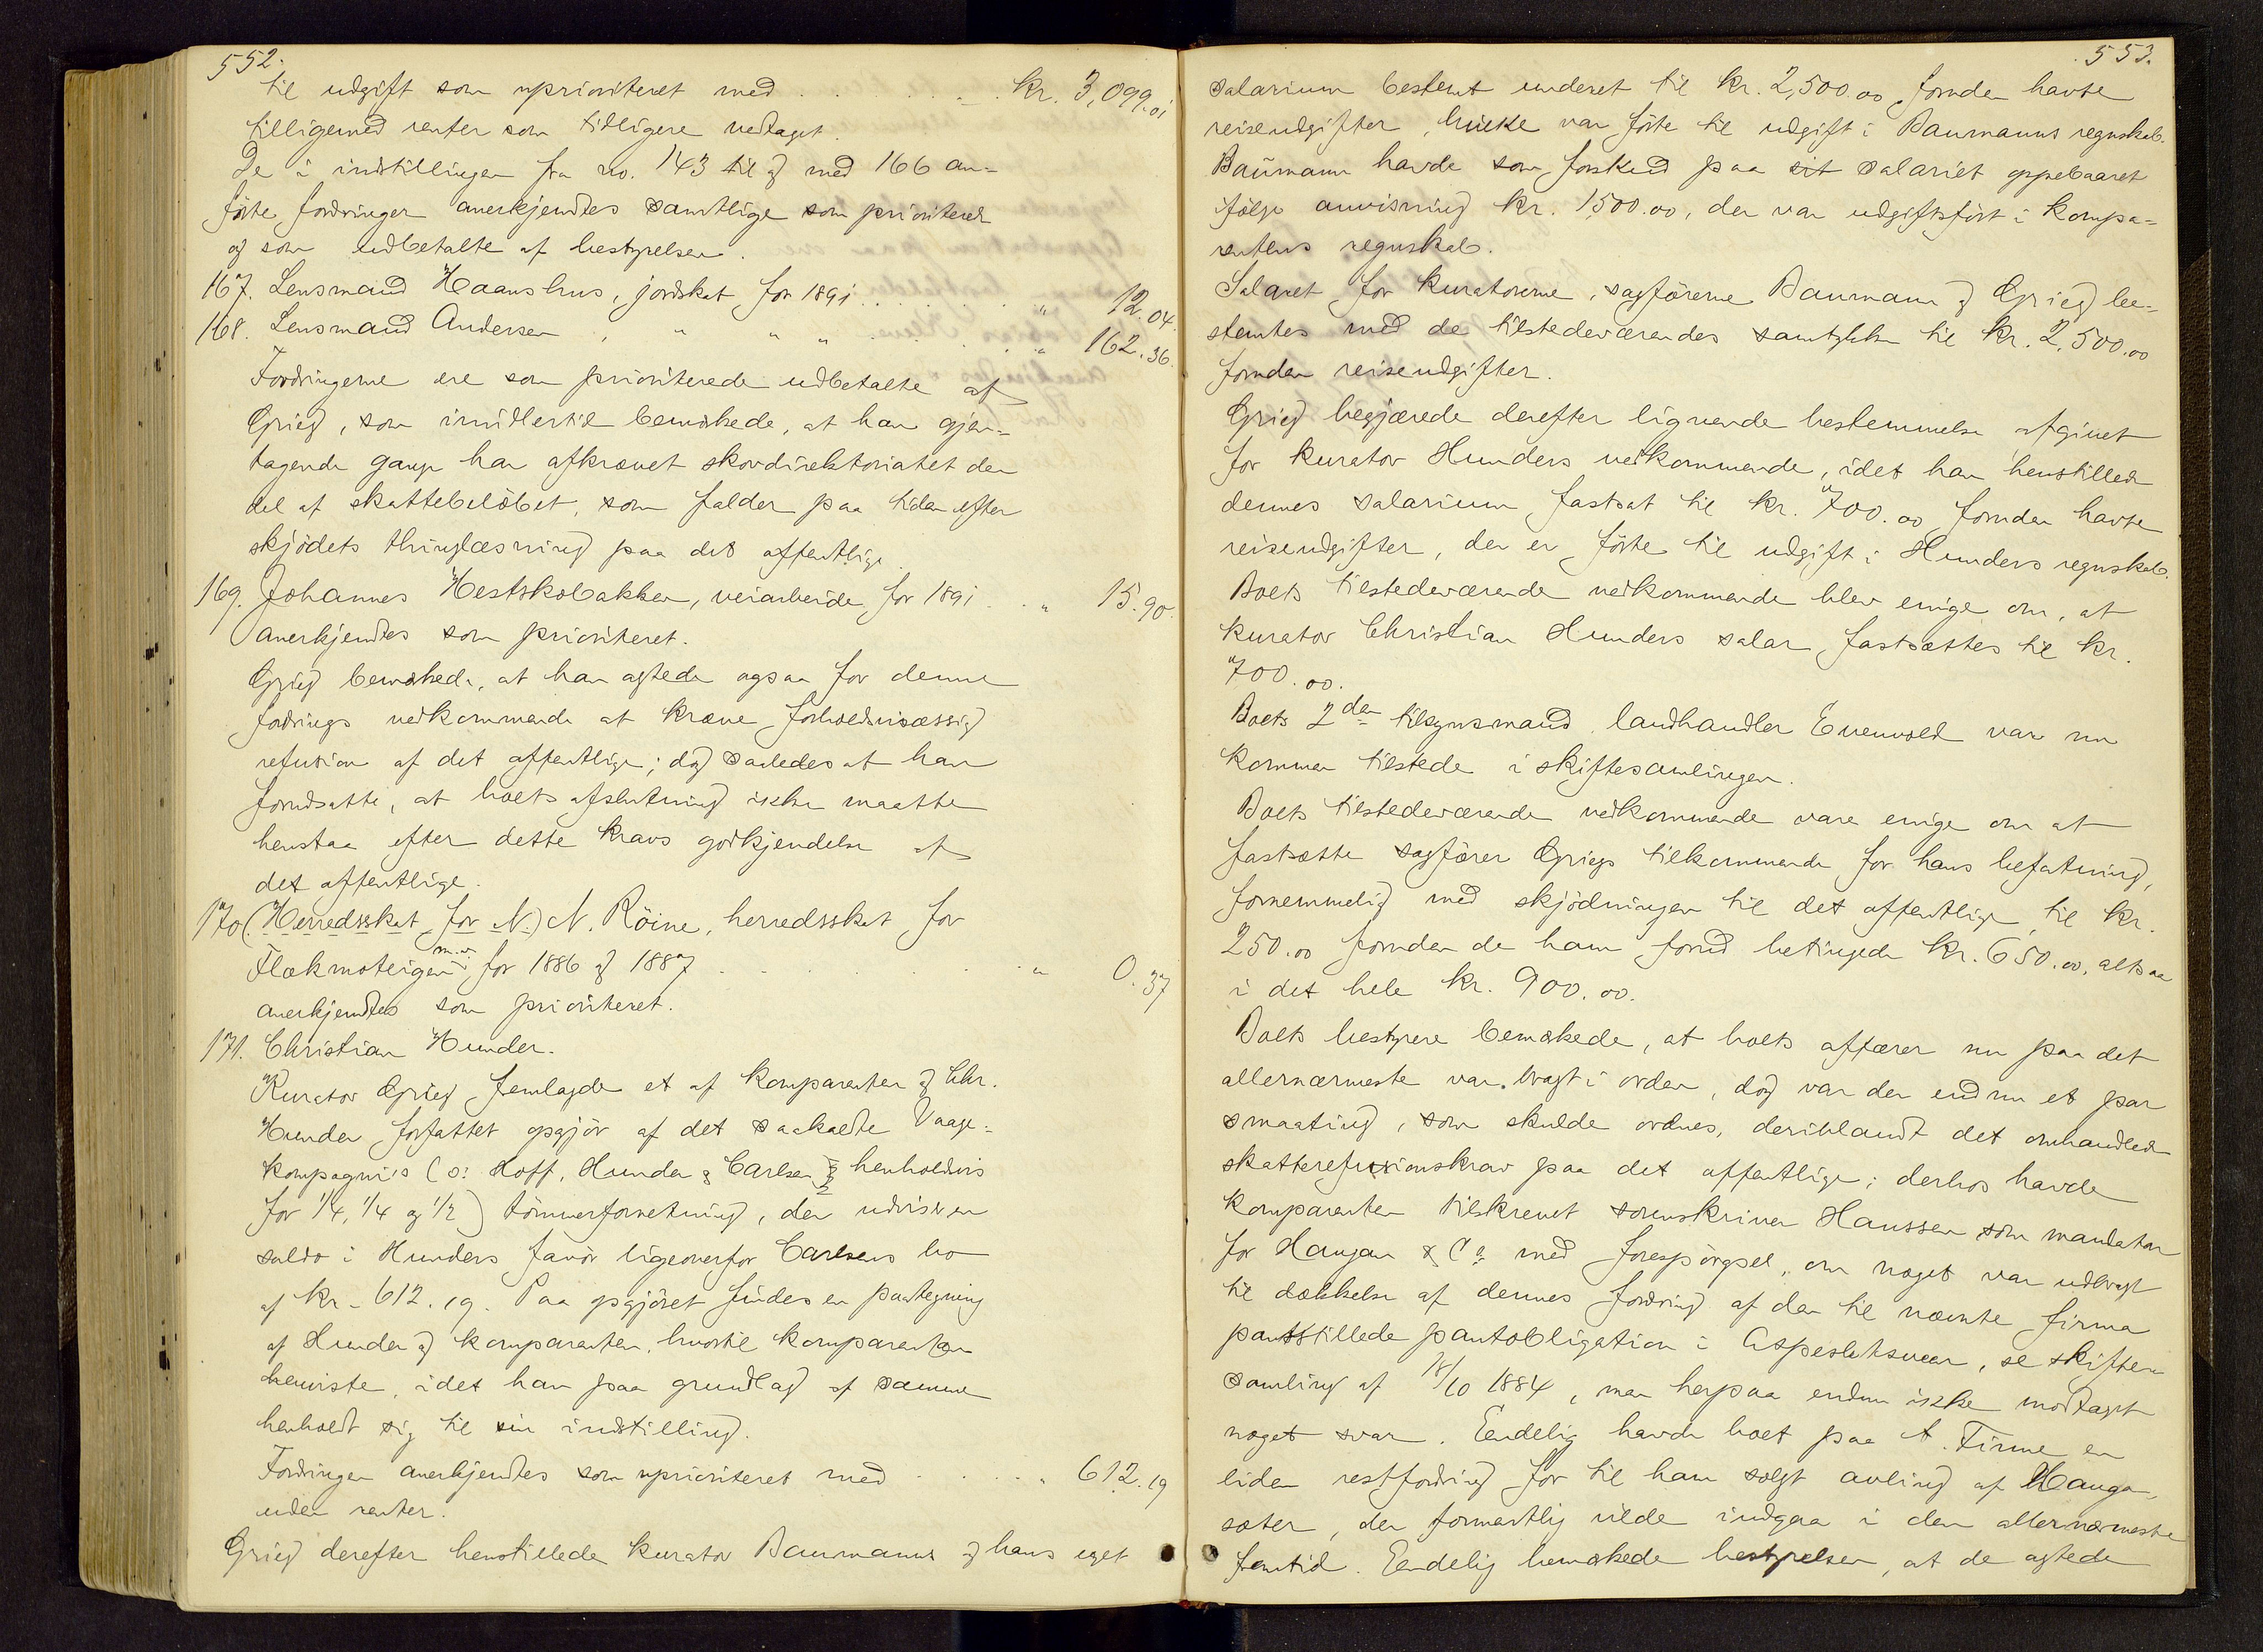 552.
til udgift som uprioriteret med . . . . . kr. 3,099.01
tilligemed renter som tidligere vedtaget.
De i indstillingen fra no. 143 til og med 166 an-
førte fordringer anerkjendtes samtlige som prioriterede
og som udbetalte af bestyrelsen.
167. Lensmand Haanshus, jordskat for 1891 . . . . . " 12.04.
168. Lensmand Andersen, " " " . . . . . " 162.36.
Fordringerne ere som prioriterede udbetalte af
Grieg, som imidlertid bemærkede, at han gjen-
tagende gange har afkrævet skovdirektoriatet den
del af skattebeløbet, som falder paa tiden efter
skjødets thinglæsning paa det offentlige.
169. Johannes Hestskobakken, veiarbeide for 1891 . . " 15.90.
anerkjendtes som prioriteret.
Grieg bemærkede, at han agtede ogsaa for denne
fordrings vedkommende at kræve forholdsmæssig
refusion af det offentlige; dog saaledes at han
forudsatte, at boets afslutning ikke maatte
henstaa efter dette kravs godkjendelse af
det offentlige.
170 (Herredsskat for N.) N. Röine, herredsskat for
Flækmoteigen m.v. for 1886 og 1887 . . . . . " 0.37
anerkjendtes som prioriteret.
171. Christian Hunder.
Kurator Grieg fremlagde et af komparenten og Chr.
Hunder forfattet opgjør af det saakaldte Vaage-
kompagnis (ɔ: Hoff, Hunder & Carlsen henholdsvis
for 1/4, 1/4 og 1/2) tømmerforretning, der udviser en
saldo i Hunders favør ligeoverfor Carlsens bo
af kr. 612.19. Paa opgjøret findes en paategning
af Hunder og komparenten, hvortil komparenten
henviste, idet han paa grundlag af samme
henholdt sig til sin indstilling.
Fordringen anerkjendtes som uprioriteret med . . . . . " 612.19
uden renter.
Grieg derefter henstillede kurator Baumanns og hans eget
553.
salarium bestemt underet til kr. 2,500.00 foruden havte
reiseudgifter, hvilke var førte til udgift i Baumanns regnskab.
Baumann havde som forskud paa sit salariet oppebaaret
ifølge anvisning kr. 1,500.00, der var udgiftsført i kompa-
rentens regnskab.
Salaret for kuratorerne, sagførerne Baumann og Grieg be-
stemtes med de tilstedeværendes samtykke til kr. 2,500.00
foruden reiseudgifter.
Grieg begjærede derefter lignende bestemmelse afgivet
for kurator Hunders vedkommende, idet han henstillede
dennes salarium fastsat til kr. 700.00 foruden havte
reiseudgifter, der er førte til udgift i Hunders regnskab.
Boets tilstedeværende vedkommende blev enige om, at
kurator Christian Hunders salar fastsættes til kr.
700.00.
Boets 2den tilsynsmand, landhandler Evenvold var nu
kommen tilstede i skiftesamlingen.
Boets tilstedeværende vedkommende vare enige om at
fastsætte sagfører Griegs tilkommende for hans befatning,
fornemmelig med skjødningen til det offentlige til kr.
250.00 foruden de ham forud betingede kr. 650.00, altsaa
i det hele kr. 900.00.
Boets bestyrere bemærkede, at boets affærer nu paa det
allernærmeste var bragt i orden, dog var der endnu et par
smaating, som skulde ordnes, deriblandt det omhandlede
skatterefusionskrav paa det offentlige; derhos havde
komparenten tilskrevet sorenskriver Hanssen som mandatar
for Haugan & Co med forespørgsel, om noget var udbragt
til dækkelse af dennes fordring af den til nævnte firma
pantstillede pantobligation i Aspesletsveen, se skifte-
samling af 18/10 1884, men herpaa endnu ikke modtaget
noget svar. Endelig havde boet paa A. Firme en
liden restfordring for til ham solgt avling af Hauga-
sæter, der formentlig vilde indgaa i den allernærmeste
fremtid. Endelig bemærkede bestyrelsen, at de agtede